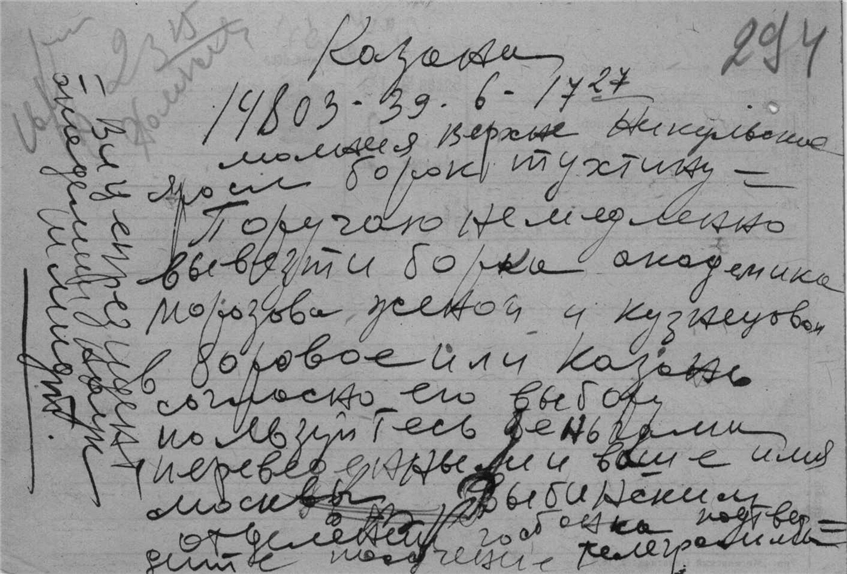 294
Казани
14803 - 39 - 6 - 17 27
молния Верхне Никульское
яросл борок тухтину =
Поручаю немедленно
вывезти борка академика
морозова женой и кузнецовой
в боровое или казань
согласно его выбору
пользуйтесь деньгами
переведенными ваше имя
москвы рыбинским
отделением госбанка подтвер
дите получение телеграммы =
= вицепрезидент
академии наук
шмидт.